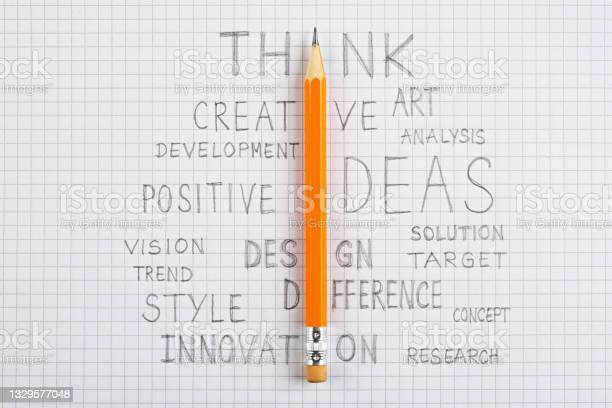 THINK
CREATIVE ART
ANALYSIS
DEVELOPMENT
POSITIVE IDEAS
VISION DESIGN SOLUTION
TREND TARGET
STYLE DIFFERENCE CONCEPT
INNOVATION RESEARCH
iStock
by Getty Images
1329577048